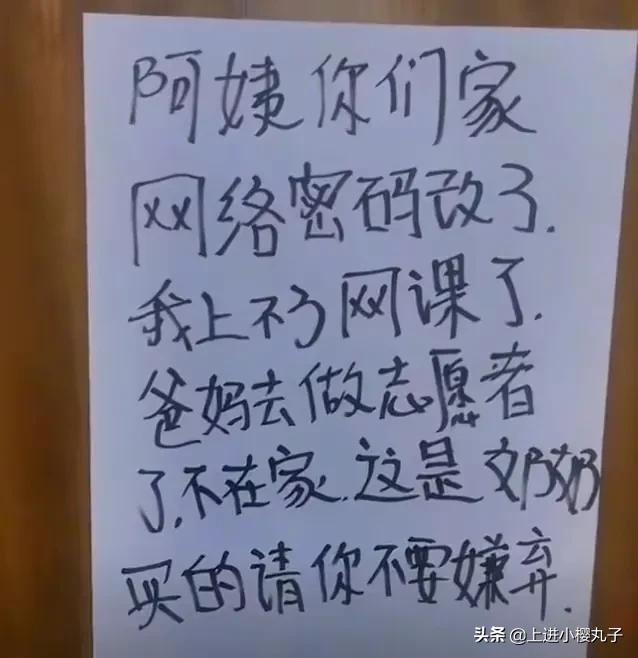 阿姨你们家
网络密码改了.
我上不了网课了.
爸妈去做志愿者
了.不在家.这是奶奶
买的请你不要嫌弃.
头条 @上进小樱丸子